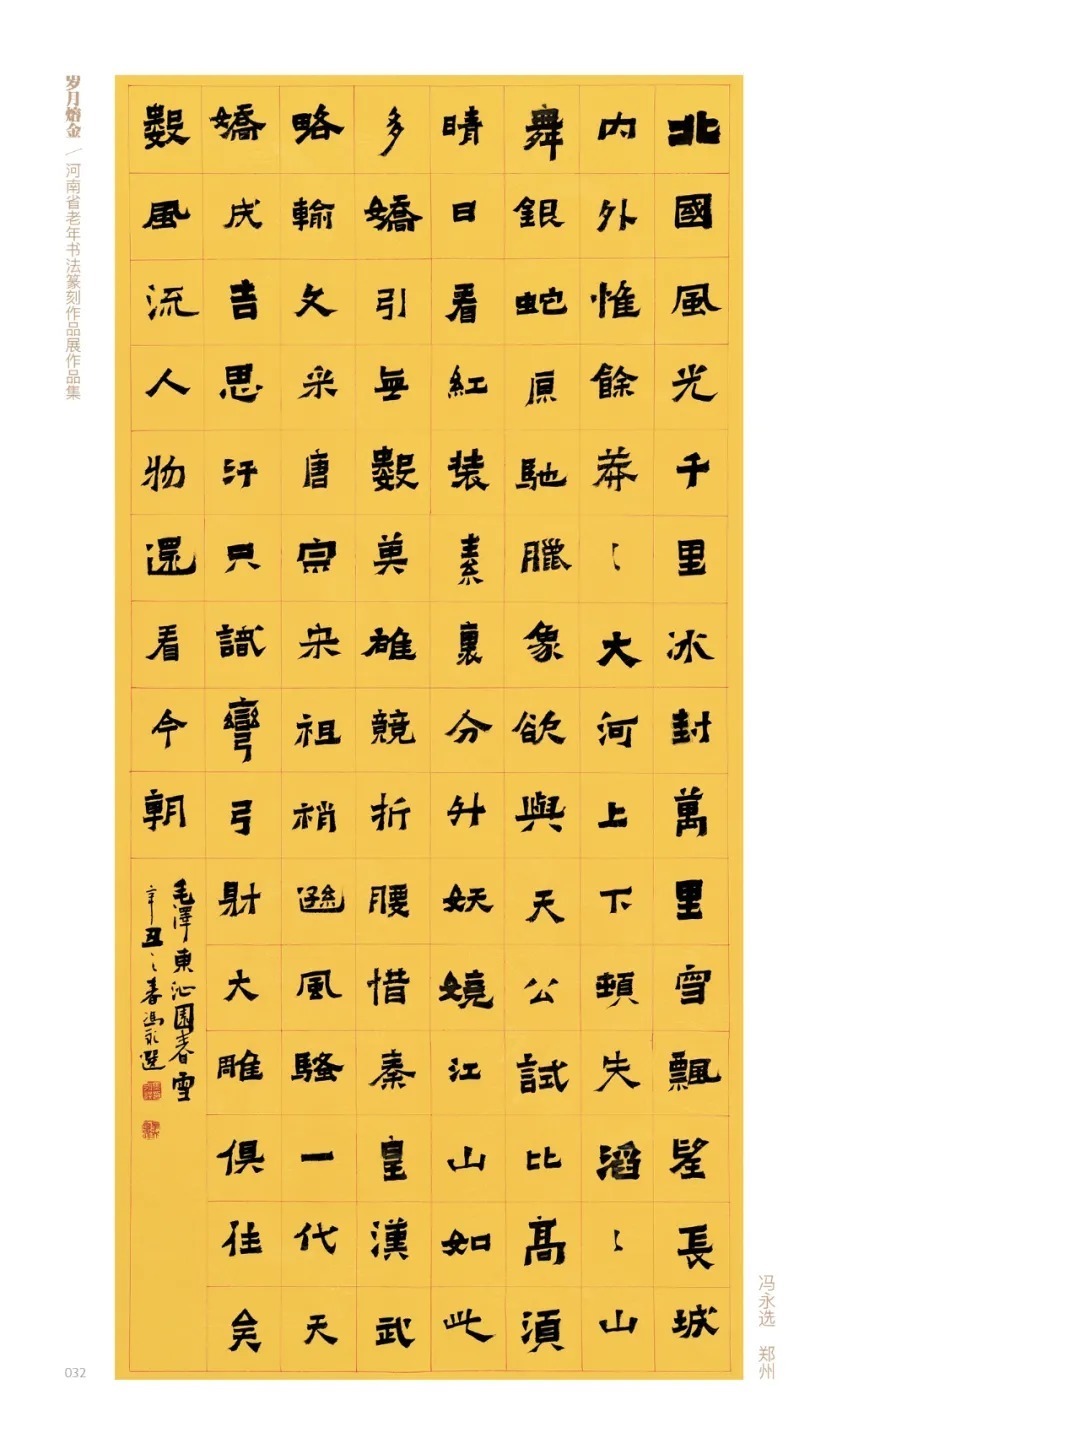 岁月熔金／河南省老年书法篆刻作品展作品集
北國風光千里冰封萬里雪飄望長城
内外惟餘莽〻大河上下頓失滔〻山
舞銀蛇原馳臘象欲與天公試比高須
晴日看紅装素裏分外妖嬈江山如此
多嬌引無數英雄競折腰惜秦皇漢武
略輸文采唐宗宋祖稍遜風騷一代天
嬌成吉思汗只識彎弓射大雕俱往矣
數風流人物還看今朝
毛澤東沁園春雪
辛丑之春馮永選
冯永选 郑州
032